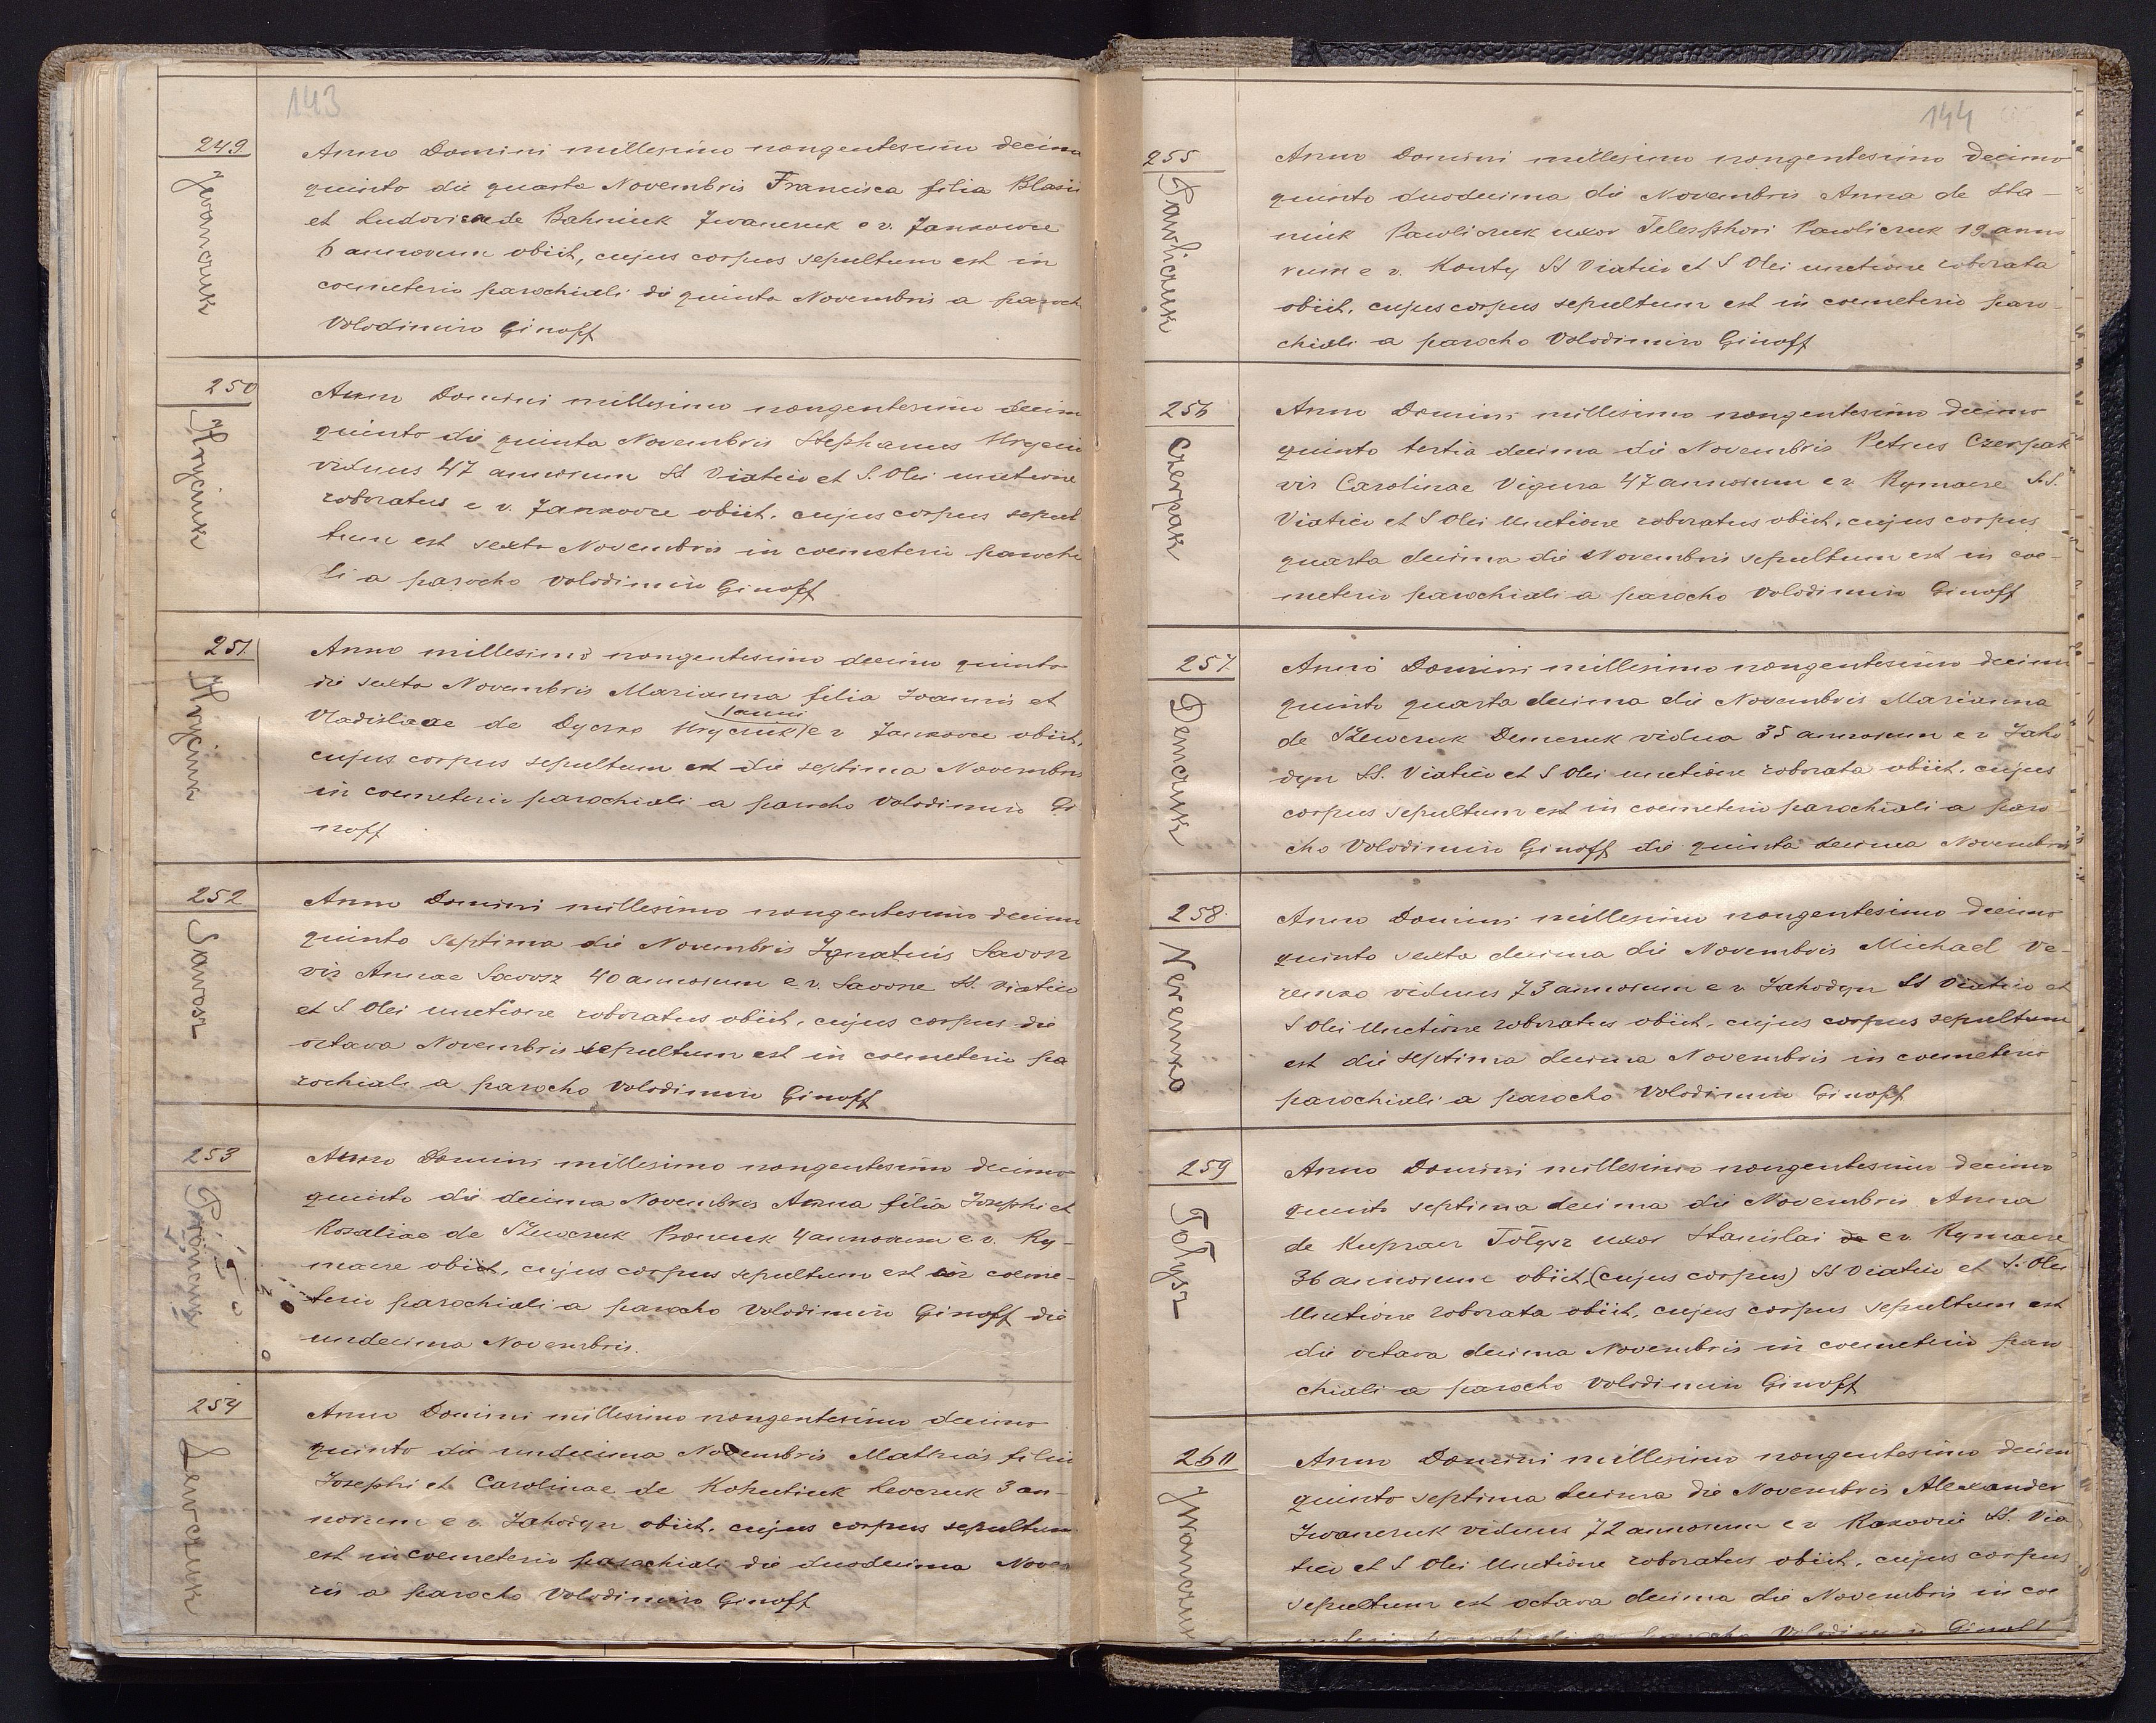 143
249.
Iwanczuk
Anno Domini millesimo nongentesimo decimo
quinto die quarta Novembris Francisca filia Blasii
et Ludovicae de Bahniuk Iwanczuk e v. Jankowce
6 annorum obiit, cujus corpus sepultum est in
coemeterio parochiali die quinta Novembris a paroch
Volodimiro Ginoff
250
Hryciuk
Anno Domini millesimo nongentesimo decim
quinto die quinta Novembris Stephanus Hryciu
viduus 47 annorum SS Viatico et S. Olei unctione
roboratus e v. Jankowce obiit, cujus corpus sepul
tum est sexta Novembris in coemeterio parochi
li a parocho Volodimiro Ginoff
251.
Hryciuk
Anno millesimo nongentesimo decimo quinto
die sexta Novembris Marianna filia Ioannis et
Vladislaae de Dyczko Hryciuk 1 anni e v Jankowce obiit,
cujus corpus sepultum est die septima Novembris
in coemeterio parochiali a parocho Volodimiro Gi
noff
252
Sawosz
Anno Domini millesimo nongentesimo decimo
quinto septima die Novembris Ignatius Sawosz
vir Annae Sawosz 40 annorum e v. Sawosze SS. Viatico
et S Olei unctione roboratus obiit, cujus corpus die
octava Novembris sepultum est in coemeterio pa
rochiali a parocho Volodimiro Ginoff
253
Anno Domini millesimo nongentesimo decimo
quinto die decima Novembris Anna filia Josephi et
Rosaliae de Szewczuk 4 annorum e v. Ry-
macze obiit, cujus corpus sepultum est in coeme-
terio parochiali a parocho Volodimiro Ginoff die
undecima Novembris.
254
Lewczuk
Anno Domini millesimo nongentesimo decimo
quinto die undecima Novembris Mathias filiu
Josephi et Carolinae de Kohutiuk Lewczuk 3 an-
norum e v. Jahodyn obiit, cujus corpus sepultum
est in coemeterio parochiali die duodecima Novem
ris a parocho Volodimiro Ginoff
144
255
Pawliczuk
Anno Domini millesimo nongentesimo decimo
quinto duodecima die Novembris Anna de Sta-
niuk Pawliczuk uxor Telesphori Pawliczuk 19 anno
rum e v. Konty SS Viatico et S Olei unctione roborata
obiit, cujus corpus sepultum est in coemeterio paro-
chiali a parocho Volodimiro Ginoff
256
Czerpak
Anno Domini millesimo nongentesimo decimo
quinto tertia decima die Novembris Petrus Czerpak
vir Carolinae Vigura 47 annorum e v. Rymacze S.S.
Viatico et S Olei Unctione roboratus obiit, cujus corpus
quarta decima die Novembris sepultum est in coe-
meterio parochiali a parocho Volodimiro Ginoff
257.
Demczuk
Anno Domini millesimo nongentesimo decimo
quinto quarta decima die Novembris Marianna
de Szewczuk Demczuk vidua 35 annorum e v Jaho
dyn SS. Viatico et S Olei unctione roborata obiit, cujus
corpus sepultum est in coemeterio parochiali a paro
cho Volodimiro Ginoff die quinta decima Novembris
258.
Neremko
Anno Domini millesimo nongentesimo decimo
quinto sexta decima die Novembris Michael Ve-
remko viduus 73 annorum e v Jahodyn SS Viatico et
S Olei Unctione roboratus obiit, cujus corpus sepultum
est die septima decima Novembris in coemeterio
parochiali a parocho Volodimiro Ginoff
259
Tołysz
Anno Domini millesimo nongentesimo decimo
quinto septima decima die Novembris Anna
de Kupracz Tołysz uxor Stanislai de e v. Rymacze
36 annorum obiit (cujus corpus) SS Viatico et S. Olei
Unctione roborata obiit, cujus corpus sepultum est
die octava decima Novembris in coemeterio paro
chiali a parocho Volodimiro Ginoff
260
Iwanczuk
Anno Domini millesimo nongentesimo decim
quinto septima decima die Novembris Alexander
Iwanczuk viduus 72 annorum e v Rakowie SS. Via
tico et S Olei Unctione roboratus obiit, cujus corpus
sepultum est octava decima die Novembris in coe
meterio parochiali a parocho Volodimiro Ginoff